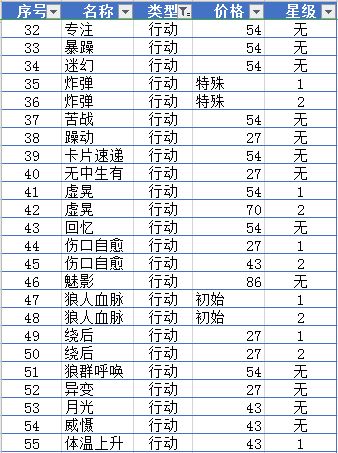 序号 名称 类型 价格 星级
32 专注 行动 54 无
33 暴躁 行动 54 无
34 迷幻 行动 54 无
35 炸弹 行动 特殊 1
36 炸弹 行动 特殊 2
37 苦战 行动 54 无
38 躁动 行动 27 无
39 卡片速递 行动 54 无
40 无中生有 行动 27 无
41 虚晃 行动 54 1
42 虚晃 行动 70 2
43 回忆 行动 54 无
44 伤口自愈 行动 27 1
45 伤口自愈 行动 43 2
46 魅影 行动 86 无
47 狼人血脉 行动 初始 1
48 狼人血脉 行动 初始 2
49 绕后 行动 27 1
50 绕后 行动 27 2
51 狼群呼唤 行动 54 无
52 异变 行动 27 无
53 月光 行动 43 无
54 威慑 行动 43 无
55 体温上升 行动 43 1